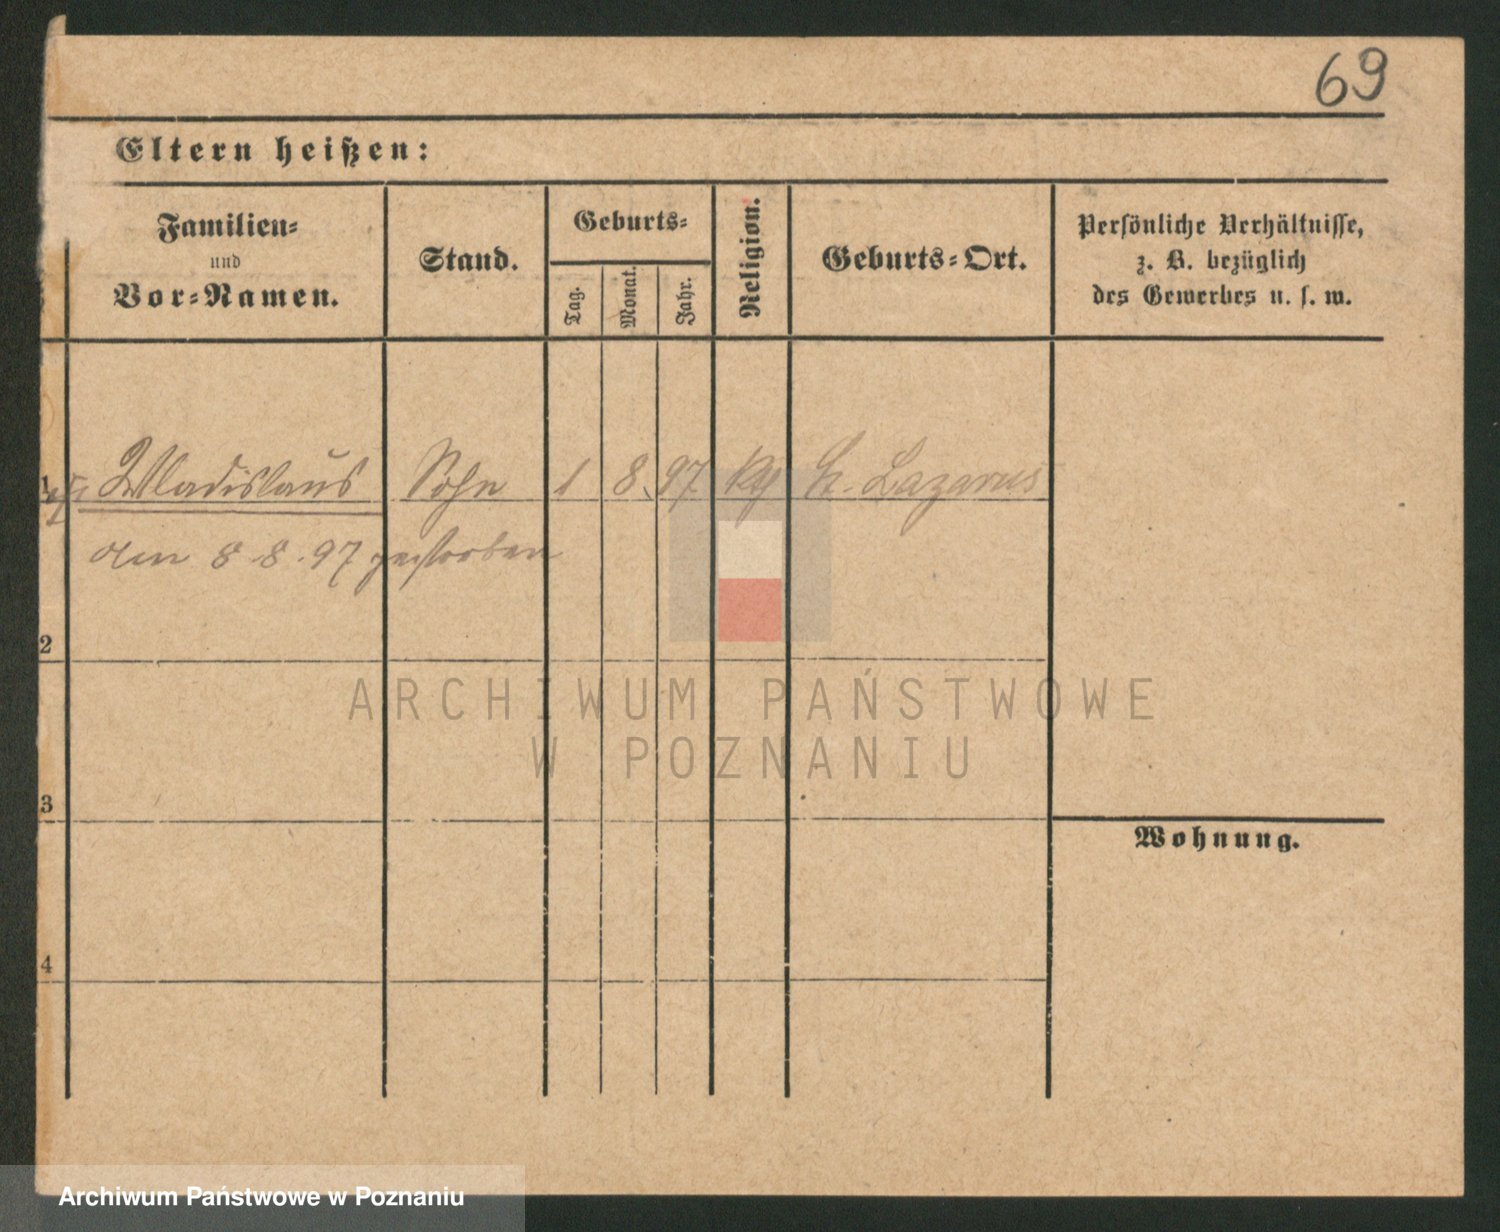 69
Eltern heißen:
Familien=
und
Vor=Namen.
Stand.
Geburts=
Tag.
Monat.
Jahr.
Religion.
Geburts=Ort.
Persönliche Verhältnisse,
z. B. bezüglich
des Gewerbes u. s. w.
1 Wladislaus Sohn 1 8. 97 St. Lazarus
den 8 8. 97 gestorben
2
ARCHIWUM PAŃSTWOWE
W POZNANIU
3
Wohnung.
4
Archiwum Państwowe w Poznaniu